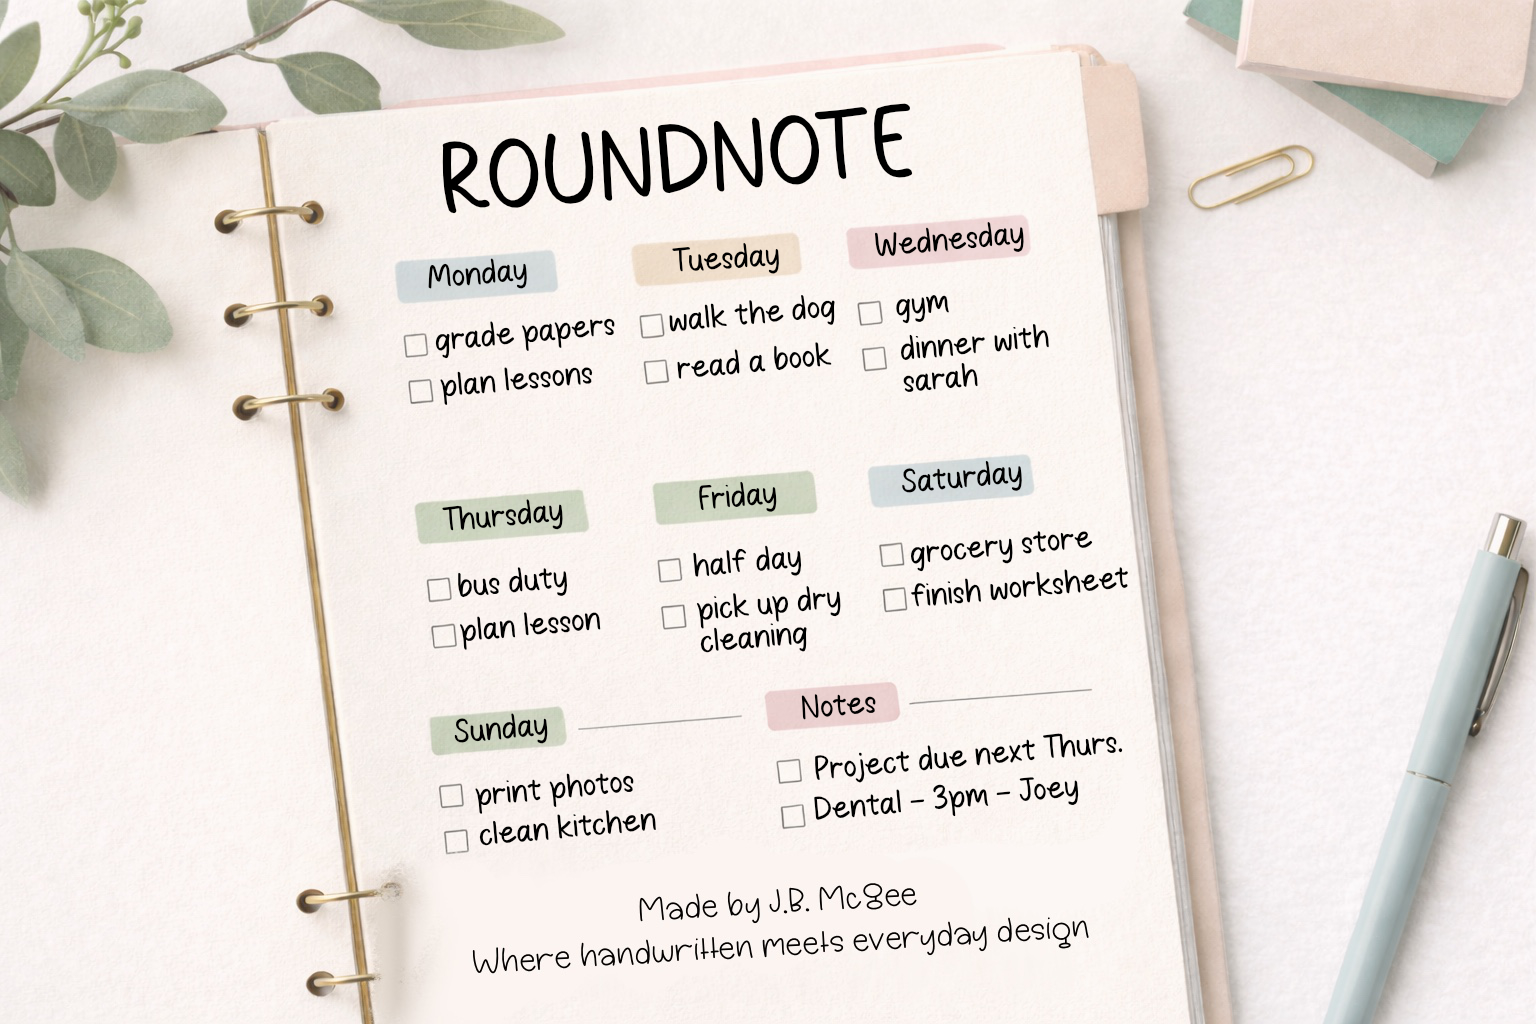 ROUNDNOTE
Monday
grade papers
plan lessons
Tuesday
walk the dog
read a book
Wednesday
gym
dinner with
sarah
Thursday
bus duty
plan lesson
Friday
half day
pick up dry
cleaning
Saturday
grocery store
finish worksheet
Sunday
print photos
clean kitchen
Notes
Project due next Thurs.
Dental - 3pm - Joey
Made by J.B. McGee
Where handwritten meets everyday design